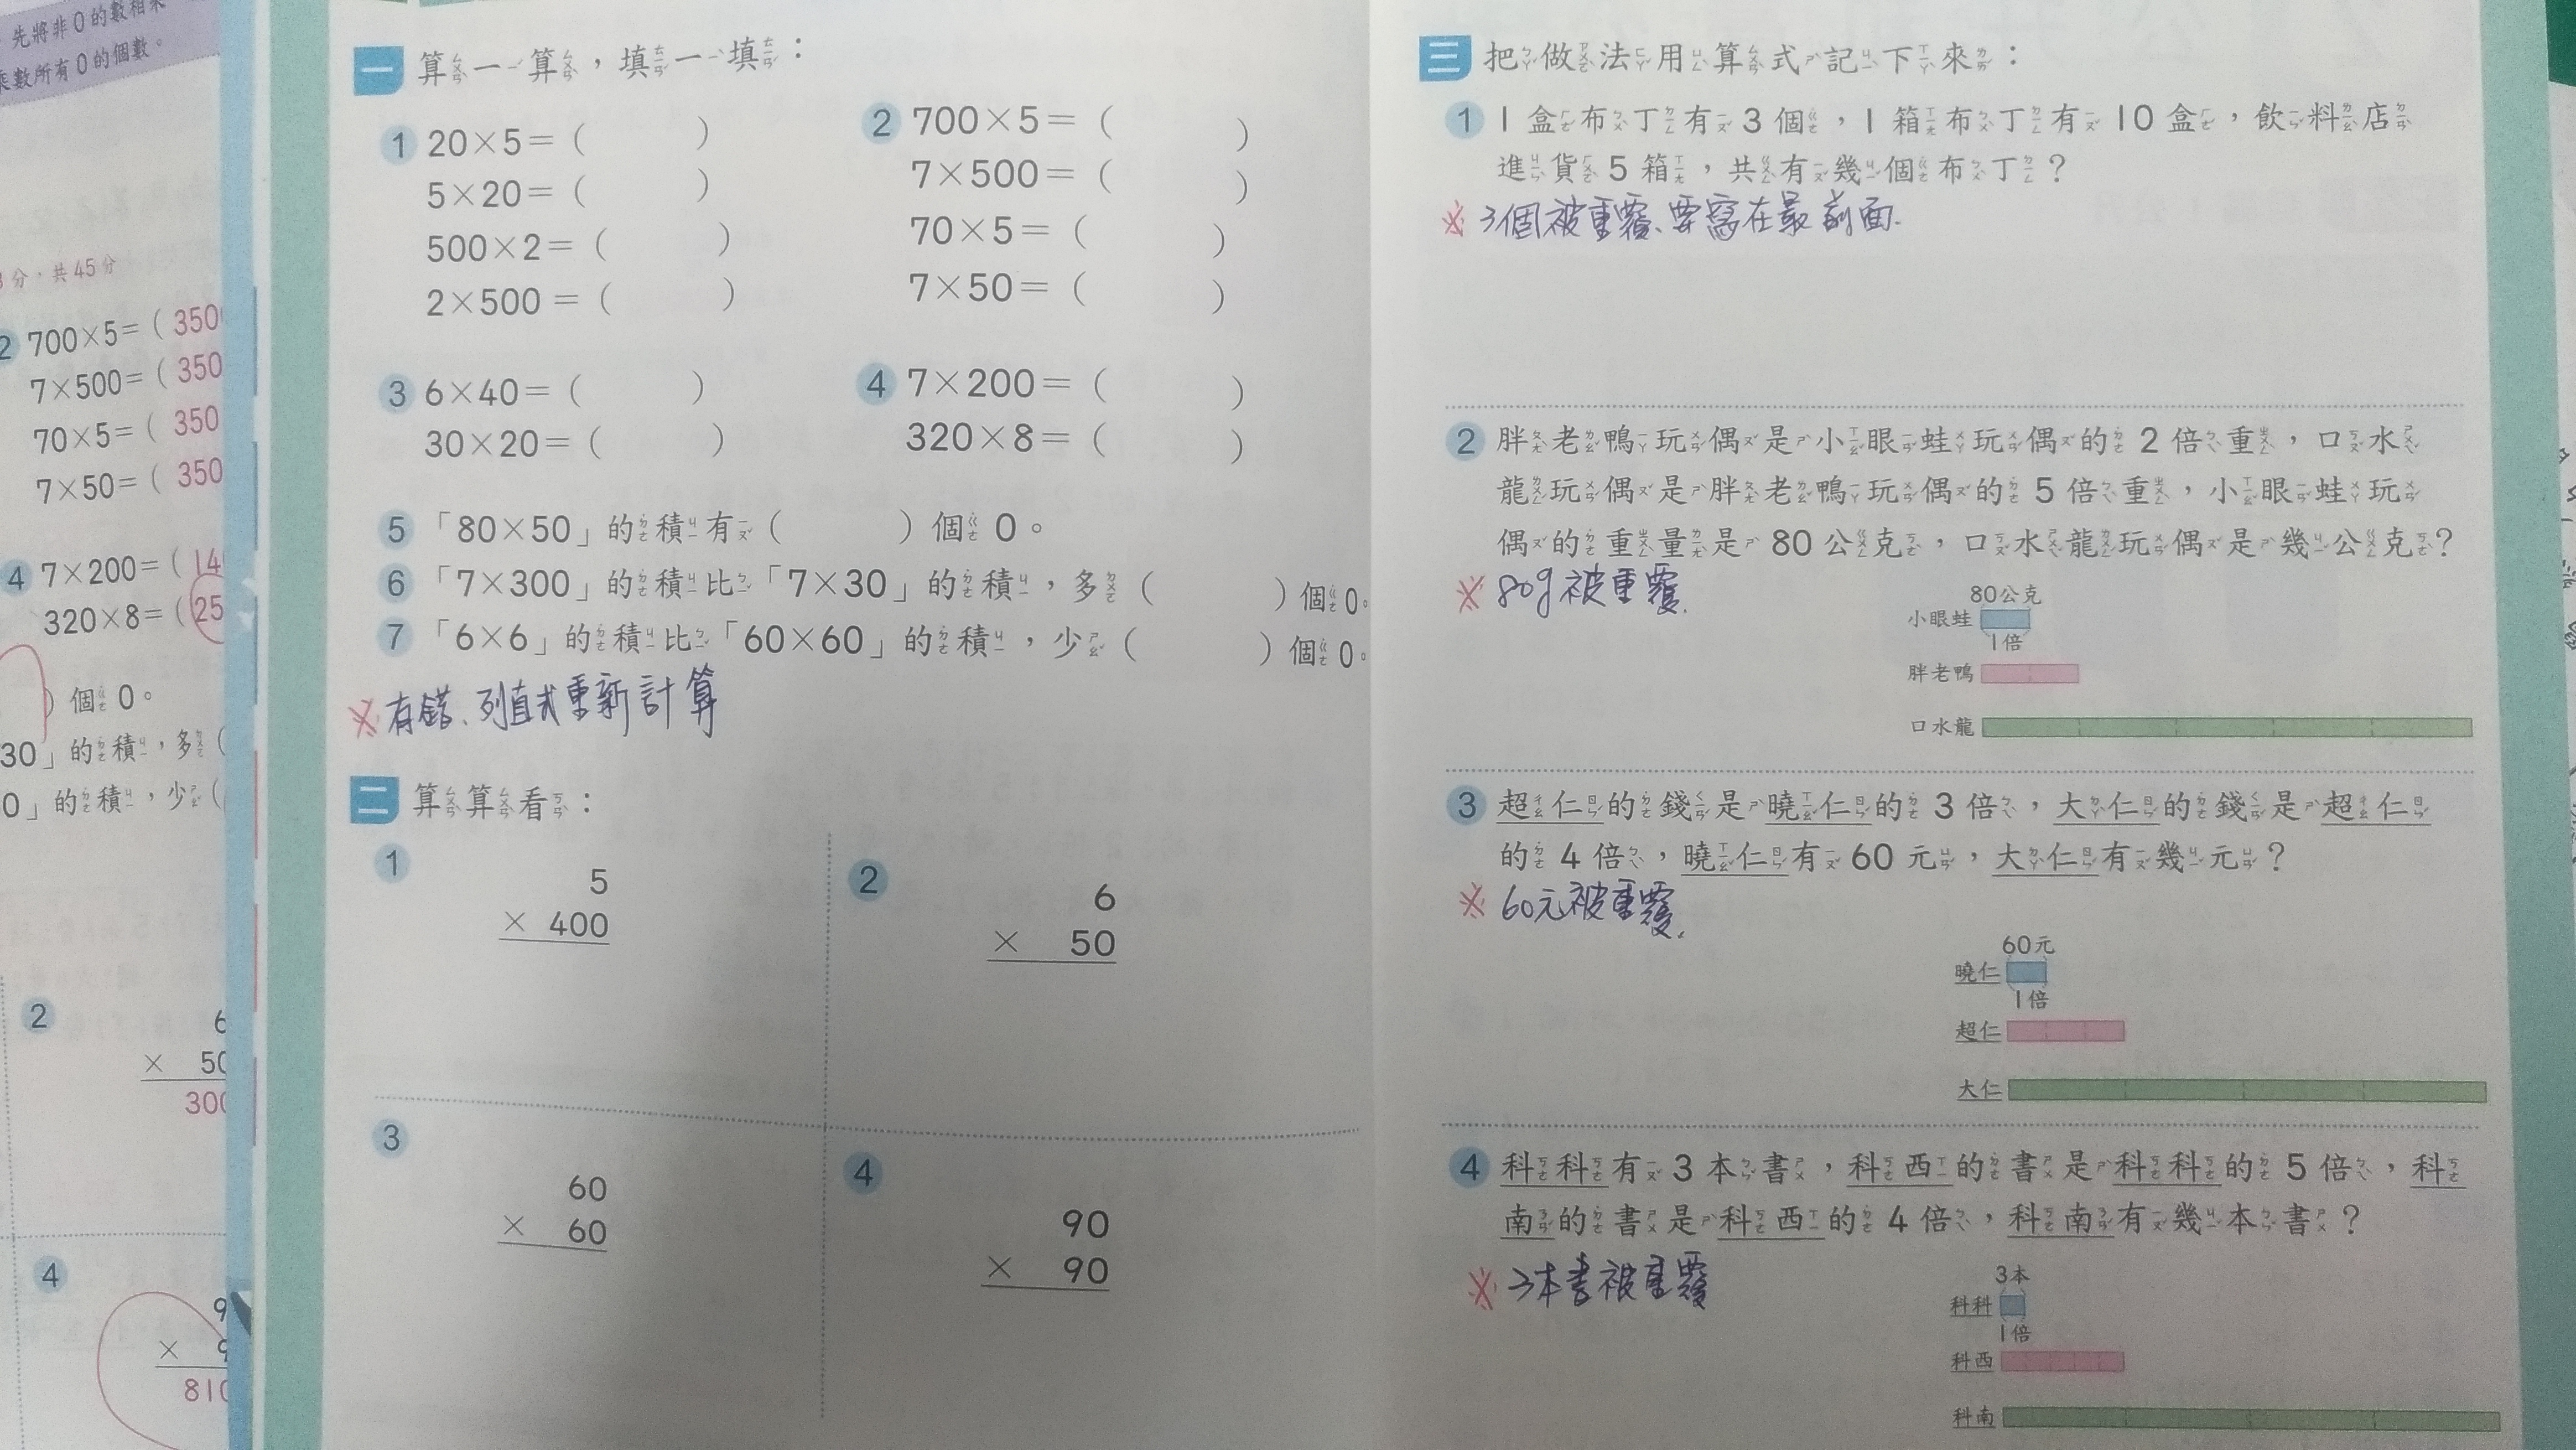 先將非0的數相乘
乘數所有0的個數。
3分，共45分
2 700×5=( 350
7×500=( 350
70×5=( 350
7×50=( 350
4 7×200=( 14
320×8=( 25
)個0。
30」的積，多(
0」的積，少(
2
6
× 50
300
4
9
× 9
810
一 算一算，填一填：
1 20×5=( )
5×20=( )
500×2=( )
2×500=( )
2 700×5=( )
7×500=( )
70×5=( )
7×50=( )
3 6×40=( )
30×20=( )
4 7×200=( )
320×8=( )
5 「80×50」的積有( )個0。
6 「7×300」的積比「7×30」的積，多( )個0。
7 「6×6」的積比「60×60」的積，少( )個0。
※有錯、列直式重新計算
二 算算看：
1
5
× 400
2
6
× 50
3
60
× 60
4
90
× 90
三 把做法用算式記下來：
1 1盒布丁有3個，1箱布丁有10盒，飲料店
進貨5箱，共有幾個布丁？
※3個被重覆、要寫在最前面.
2 胖老鴨玩偶是小眼蛙玩偶的2倍重，口水
龍玩偶是胖老鴨玩偶的5倍重，小眼蛙玩
偶的重量是80公克，口水龍玩偶是幾公克？
※80g被重覆.
80公克
小眼蛙
1倍
胖老鴨
口水龍
3 超仁的錢是曉仁的3倍，大仁的錢是超仁
的4倍，曉仁有60元，大仁有幾元？
※60元被重覆.
60元
曉仁
1倍
超仁
大仁
4 科科有3本書，科西的書是科科的5倍，科
南的書是科西的4倍，科南有幾本書？
※3本書被重覆
3本
科科
1倍
科西
科南